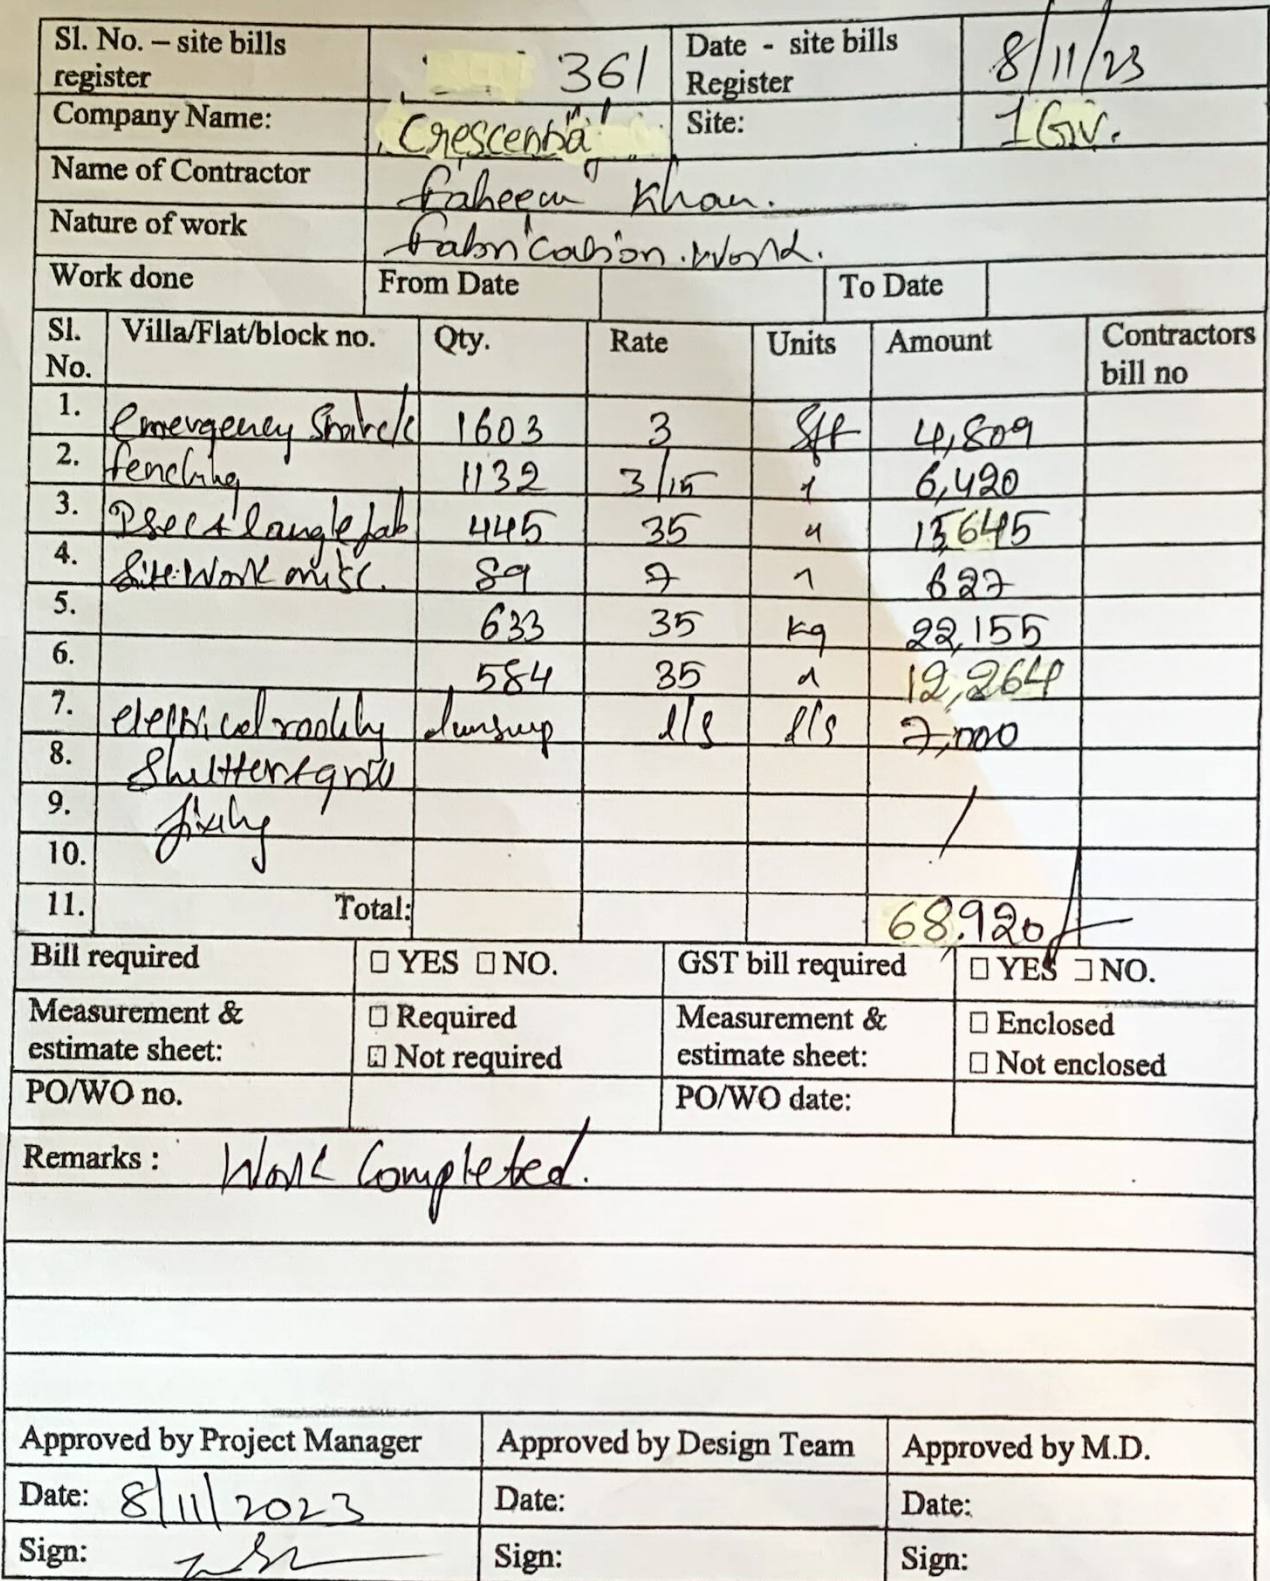 Sl. No. – site bills register 361 Date - site bills Register 8/11/23
Company Name: Site: 1 Gv.
Name of Contractor Faheem Khan.
Nature of work Fabrication work.
Work done From Date To Date
Sl. No. Villa/Flat/block no. Qty. Rate Units Amount Contractors bill no
1. emergency 1603 3 Sft 4,809
2. fenching 1132 3/15 " 6,420
3. 445 35 " 15,645
4. Site Work misc. 89 7 " 627
5. 633 35 kg 22,155
6. 584 35 " 12,264
7. electrical lumsump l/s l/s 7,000
8. Shutter
9. fixing
10.
11. Total: 68,920/-
Bill required ☐ YES ☐ NO. GST bill required ☐ YES ☐ NO.
Measurement & estimate sheet: ☐ Required ☐ Not required Measurement & estimate sheet: ☐ Enclosed ☐ Not enclosed
PO/WO no. PO/WO date:
Remarks : Work Completed.
Approved by Project Manager Approved by Design Team Approved by M.D.
Date: 8/11/2023 Date: Date:
Sign: Sign: Sign: